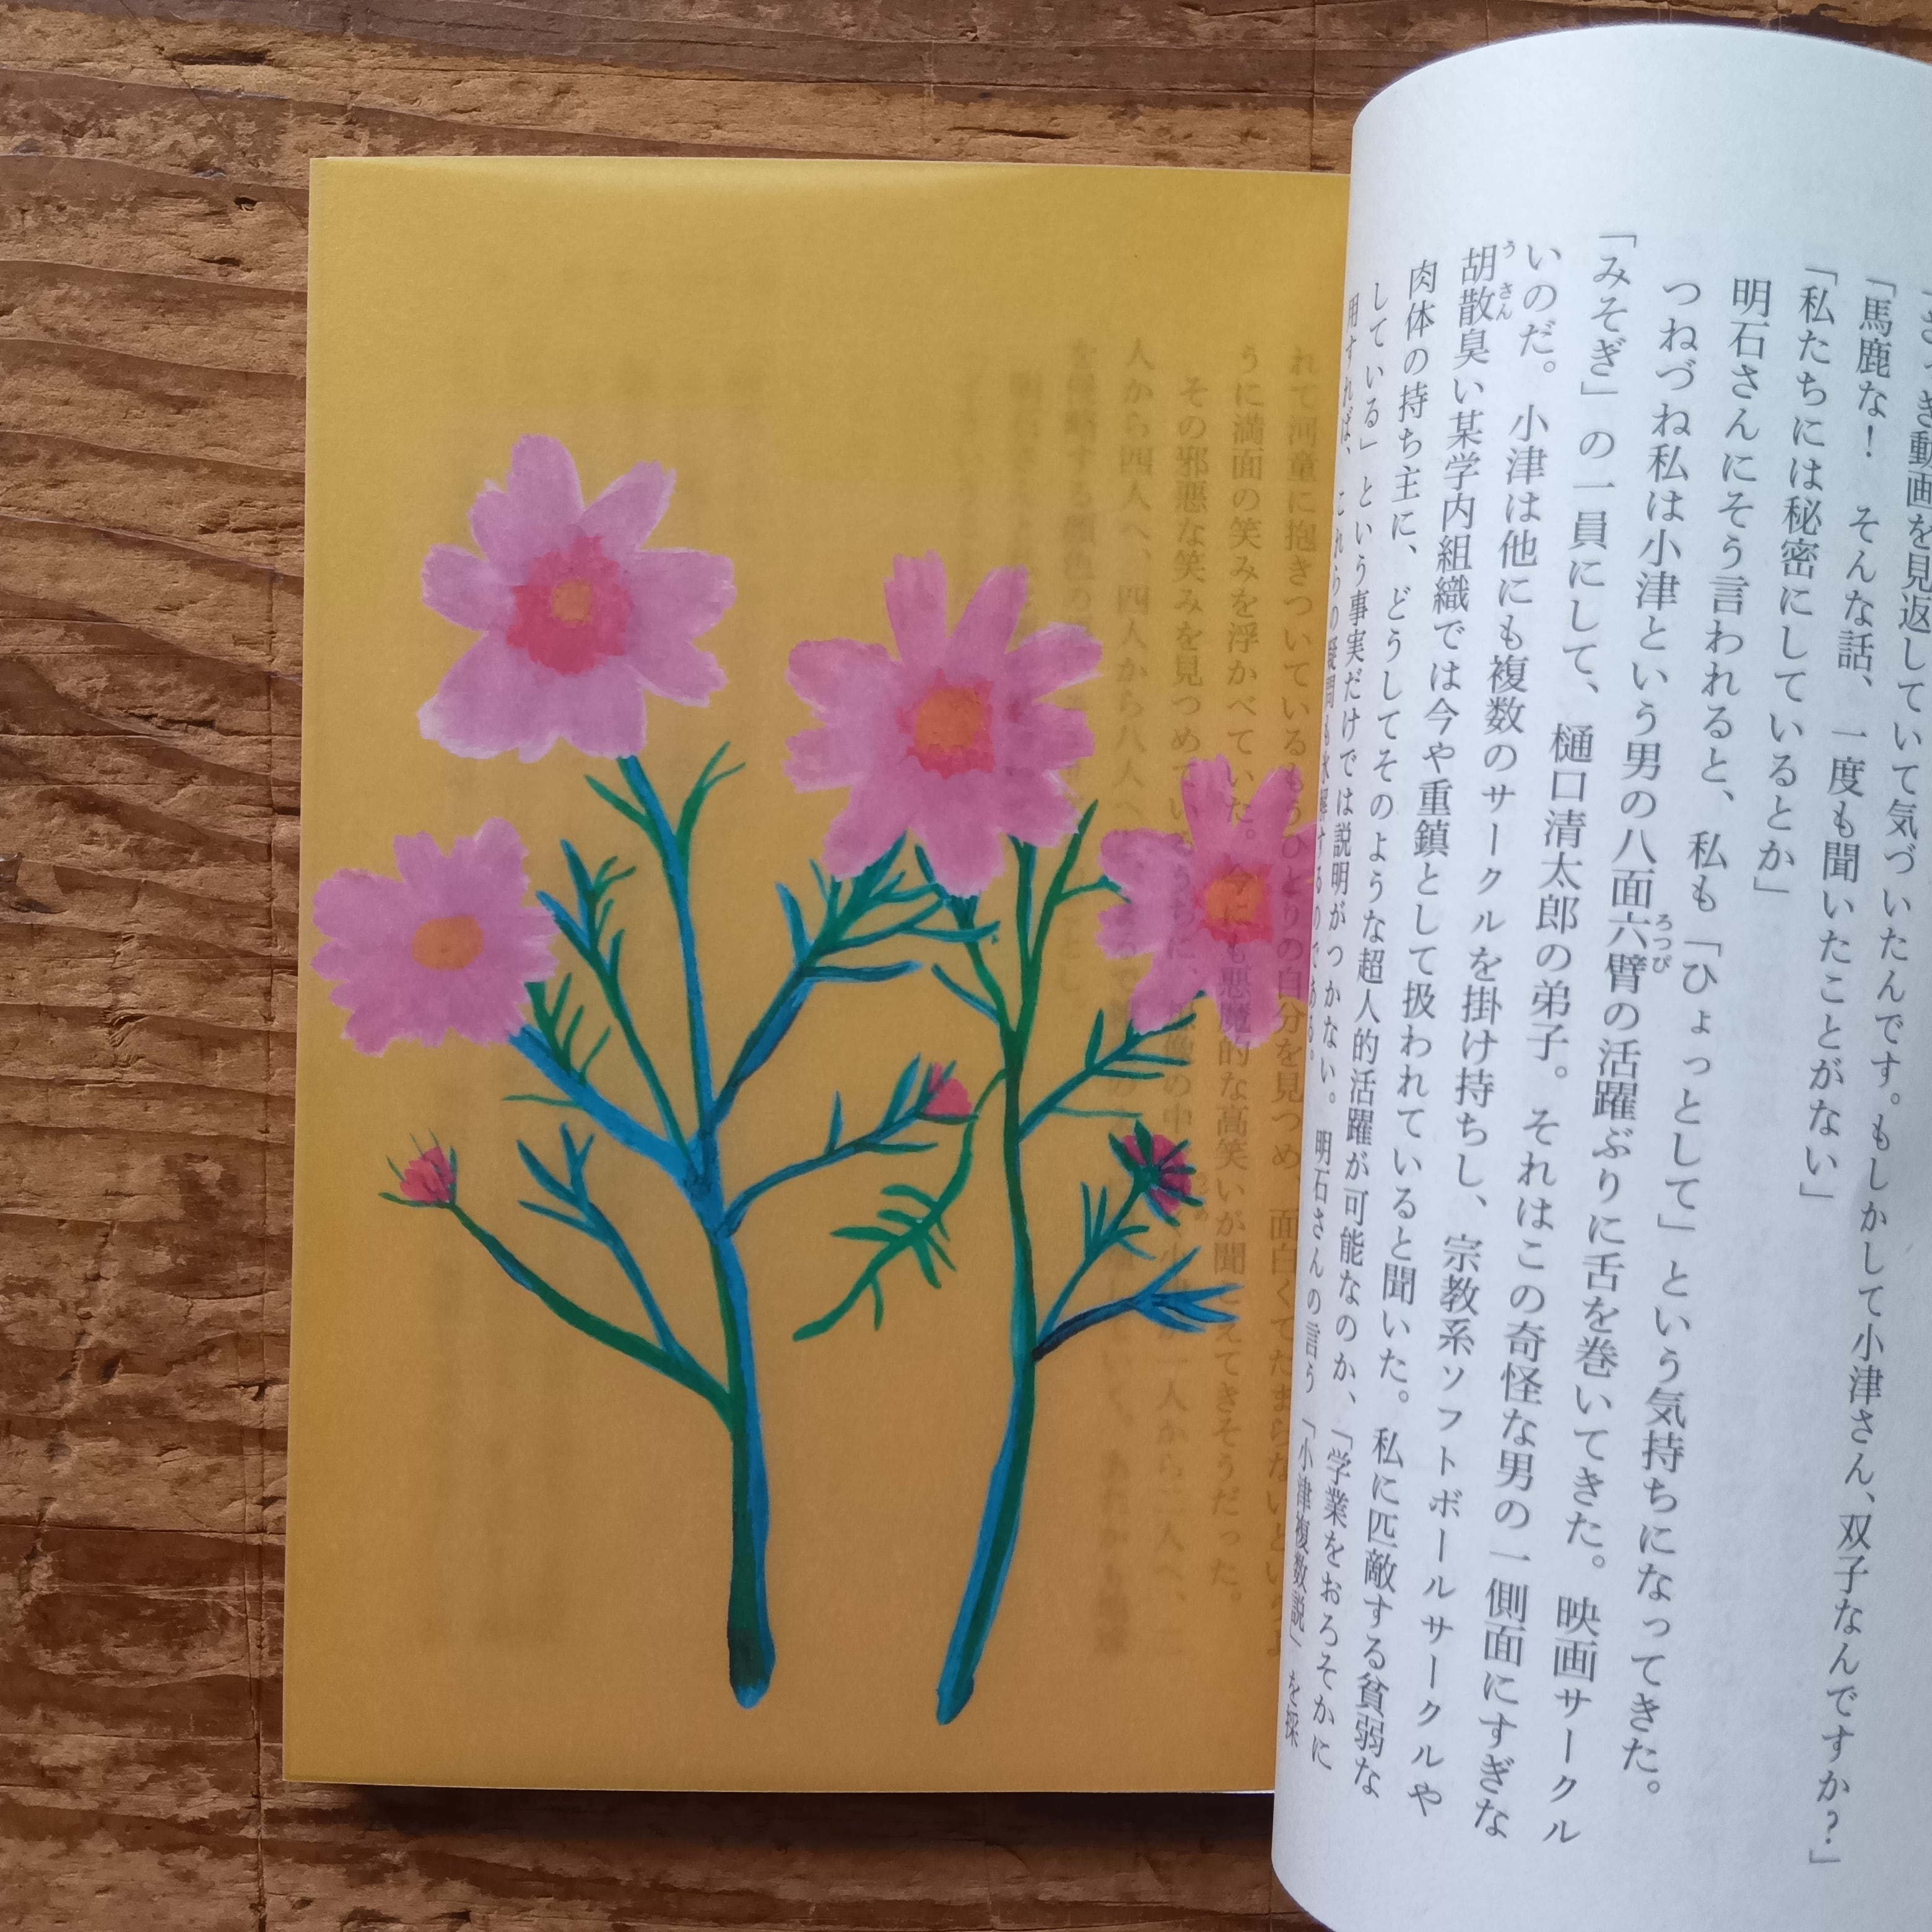 き動画を見返していて気づいたんです。もしかして小津さん、双子なんですか？」
「馬鹿な！　そんな話、一度も聞いたことがない」
「私たちには秘密にしているとか」
明石さんにそう言われると、私も「ひょっとして」という気持ちになってきた。
つねづね私は小津という男の八面六臂の活躍ぶりに舌を巻いてきた。映画サークル
「みそぎ」の一員にして、樋口清太郎の弟子。それはこの奇怪な男の一側面にすぎな
いのだ。小津は他にも複数のサークルを掛け持ちし、宗教系ソフトボールサークルや
胡散臭い某学内組織では今や重鎮として扱われていると聞いた。私に匹敵する貧弱な
肉体の持ち主に、どうしてそのような超人的活躍が可能なのか、「学業をおろそかに
している」という事実だけでは説明がつかない。明石さんの言う「小津複数説」を採
用すれば、これらの疑問も氷解するのである。
れて河童に抱きついているもうひとりの自分を見つめ、面白くてたまらないというよ
うに満面の笑みを浮かべていた。今にも悪魔的な高笑いが聞こえてきそうだった。
その邪悪な笑みを見つめているうちに、想像の中
人から四人へ、四人から八人へ